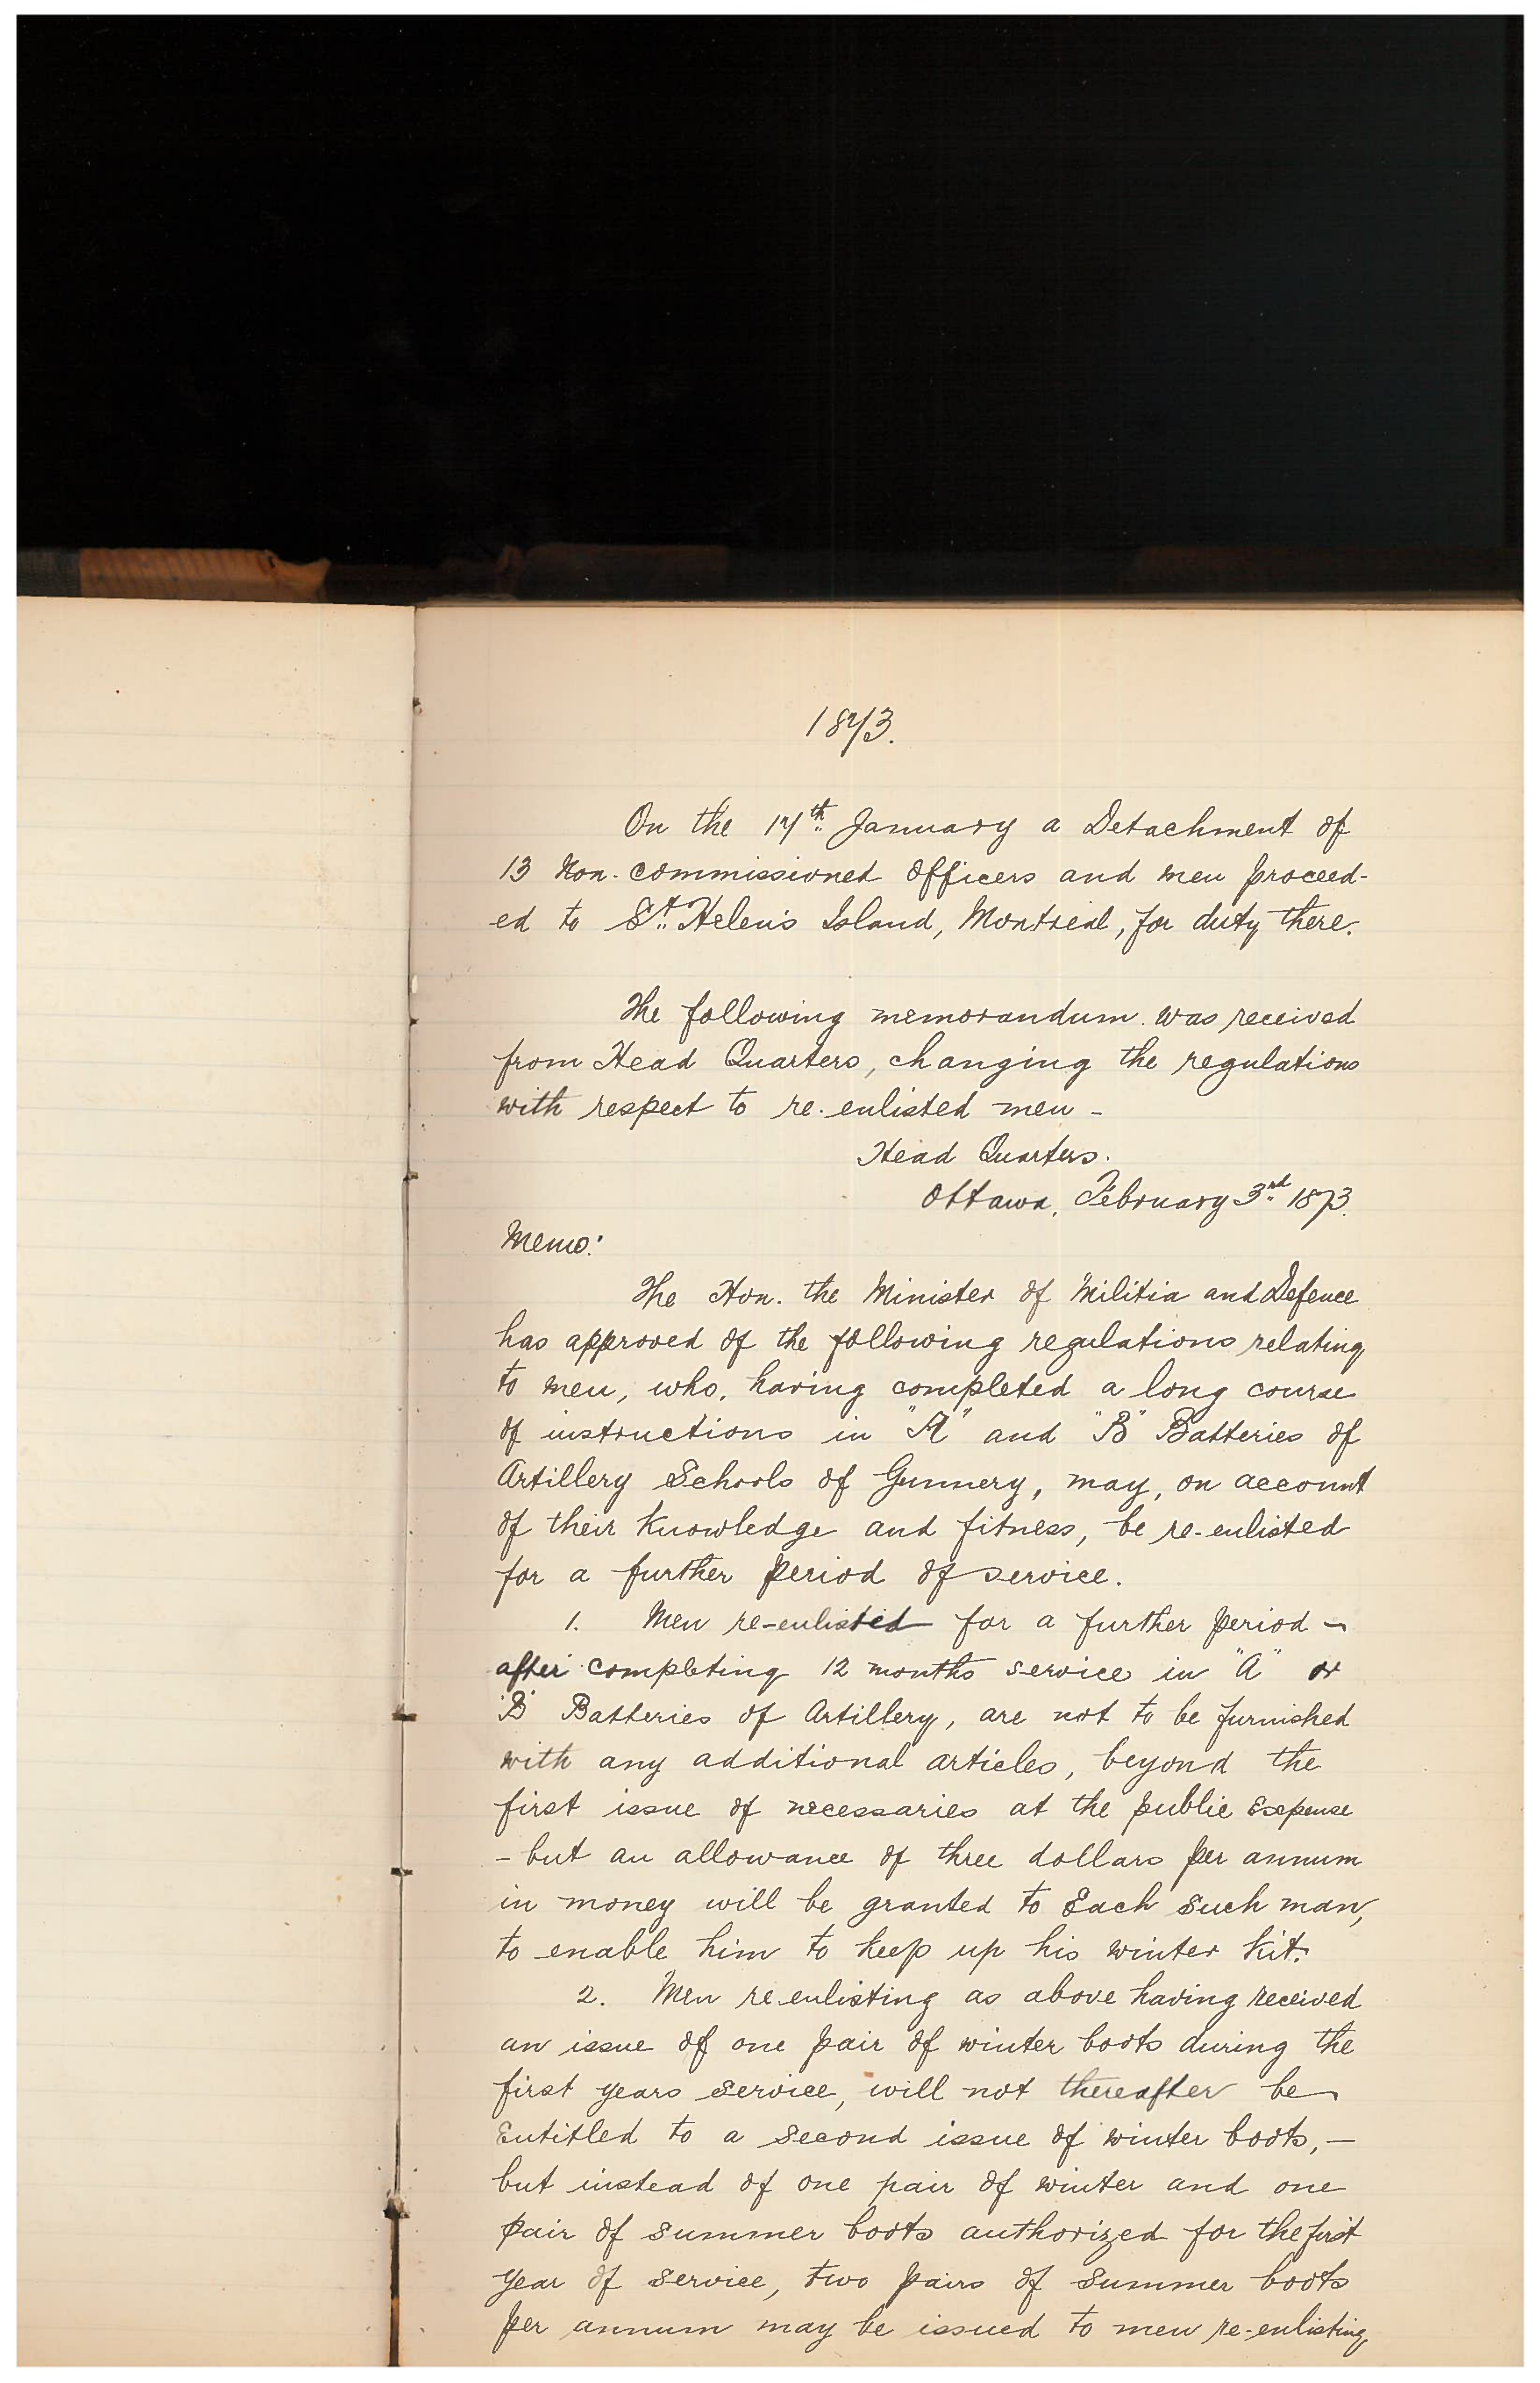 1873.
On the 17th January a Detachment of
13 Non-commissioned Officers and men proceed-
ed to St. Helen's Island, Montreal, for duty there.
The following memorandum was received
from Head Quarters, changing the regulations
with respect to re-enlisted men -
Head Quarters.
Ottawa, February 3rd 1873.
Memo:
The Hon. the Minister of Militia and Defence
has approved of the following regulations relating
to men, who, having completed a long course
of instructions in "A" and "B" Batteries of
Artillery Schools of Gunnery, may, on account
of their Knowledge and fitness, be re-enlisted
for a further period of service.
1. Men re-enlisted for a further period -
after completing 12 months service in "A" or
"B" Batteries of Artillery, are not to be furnished
with any additional articles, beyond the
first issue of necessaries at the public Expense
- but an allowance of three dollars per annum
in money will be granted to Each such man,
to enable him to keep up his winter kit.
2. Men re-enlisting as above having received
an issue of one pair of winter boots during the
first years service, will not thereafter be
Entitled to a second issue of winter boots, -
but instead of one pair of winter and one
pair of summer boots authorized for the first
year of service, two pairs of summer boots
per annum may be issued to men re-enlisting,